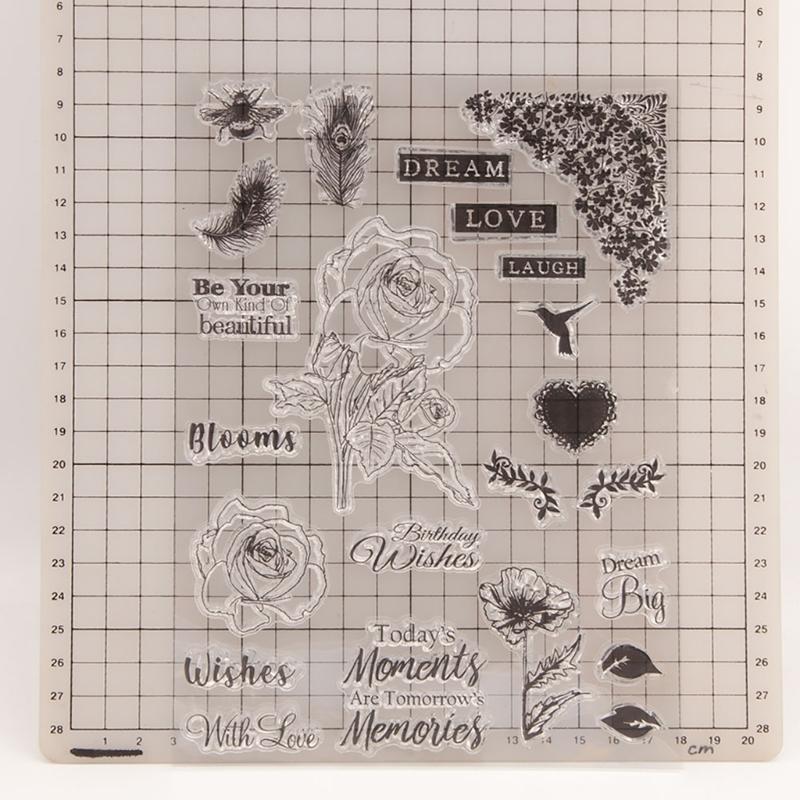 6 6
7 7
8 8
9 9
10 10
11 11
12 12
13 13
14 14
15 15
16 16
17 17
18 18
19 19
20 20
21 21
22 22
23 23
24 24
25 25
26 26
27 27
28 28
DREAM
LOVE
LAUGH
Be Your
Own Kind Of
beautiful
Blooms
Birthday
Wishes
Dream
Big
Wishes
Today's
Moments
Are Tomorrow's
Memories
With Love
1 2 3 13 14 15 16 17 18 19 20
cm